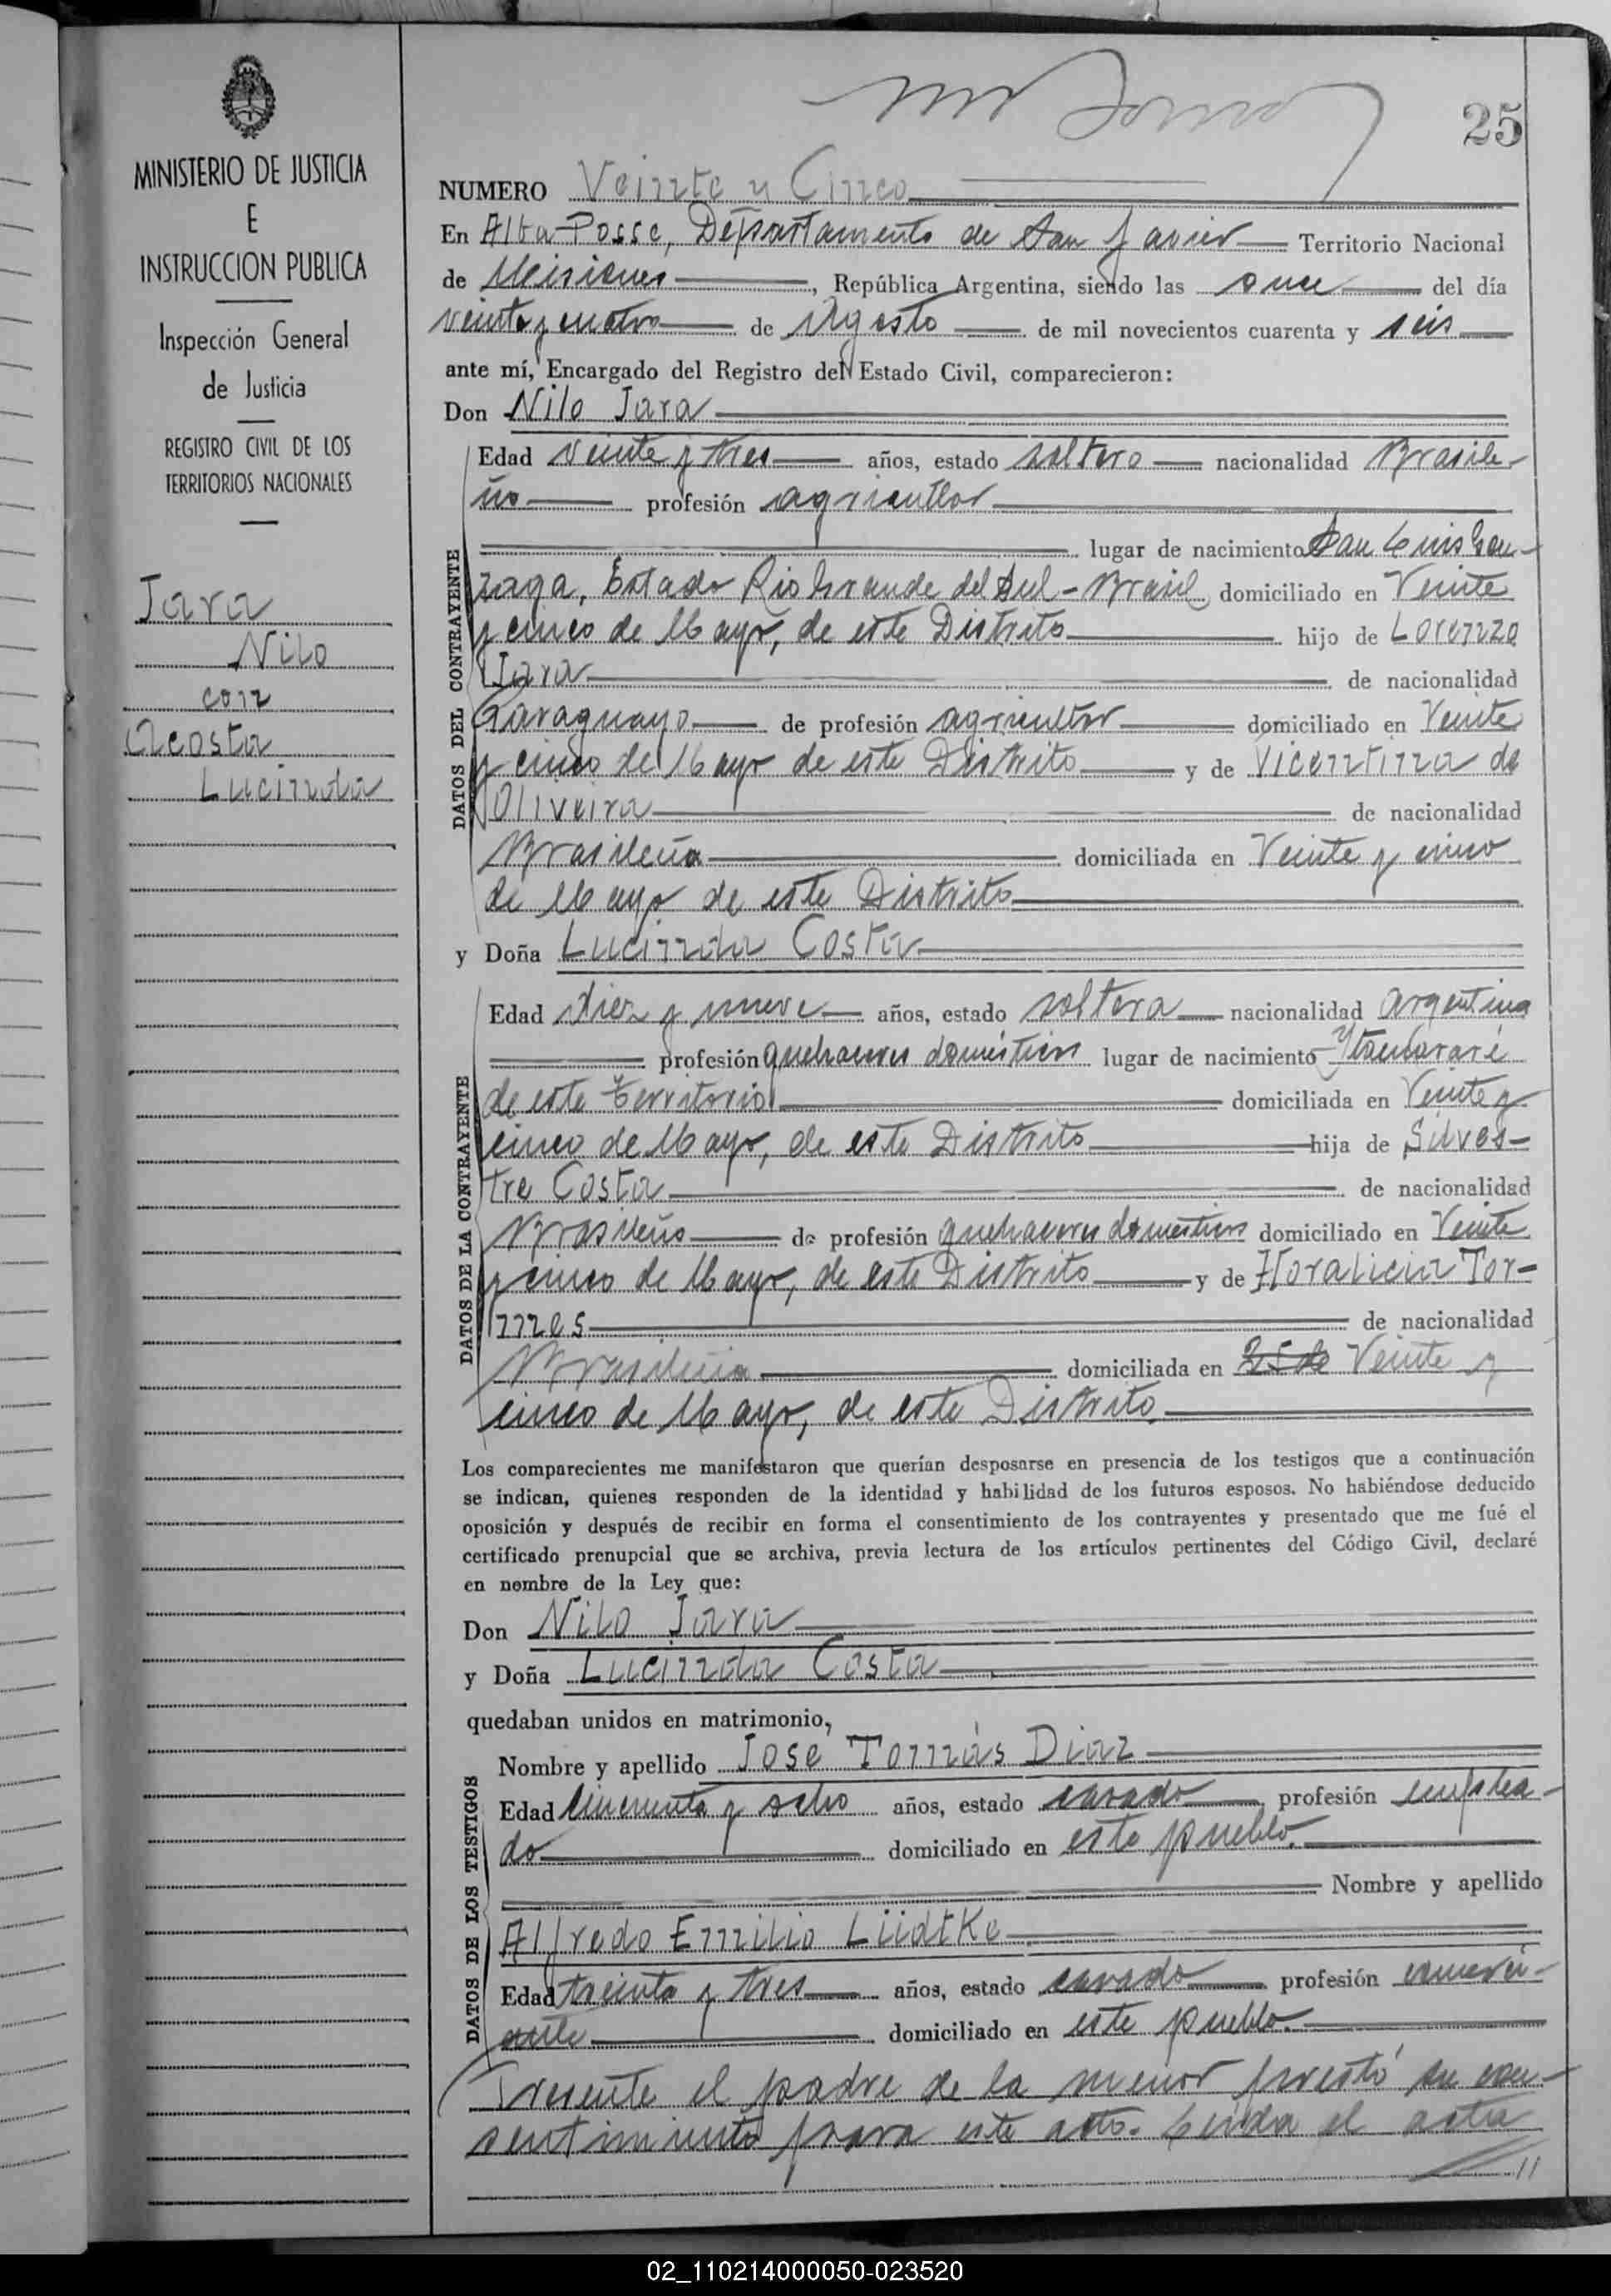 25
MINISTERIO DE JUSTICIA
E
INSTRUCCION PUBLICA
Inspección General
de Justicia
REGISTRO CIVIL DE LOS
TERRITORIOS NACIONALES
Jara
Nilo
con
Acosta
Lucinda
NUMERO Veinte y Cinco
En Alba Posse, Departamento de San Javier Territorio Nacional
de Misiones, República Argentina, siendo las once del día
veinte y cuatro de Agosto de mil novecientos cuarenta y seis
ante mí, Encargado del Registro del Estado Civil, comparecieron:
Don Nilo Jara
DATOS DEL CONTRAYENTE
Edad veinte y tres años, estado soltero nacionalidad Brasile-
ño profesión agricultor
lugar de nacimiento San Luis Gon-
zaga, Estado Rio Grande del Sul - Brasil domiciliado en Veinte
y cinco de Mayo, de este Distrito hijo de Lorenzo
Jara de nacionalidad
Paraguayo de profesión agricultor domiciliado en Veinte
y cinco de Mayo de este Distrito y de Vicentina de
Oliveira de nacionalidad
Brasileña domiciliada en Veinte y cinco
de Mayo de este Distrito
y Doña Lucinda Costa
DATOS DE LA CONTRAYENTE
Edad diez y nueve años, estado soltera nacionalidad argentina
profesión quehaceres domésticos lugar de nacimiento Ytacararé
de este Territorio domiciliada en Veinte y
cinco de Mayo, de este Distrito hija de Silves-
tre Costa de nacionalidad
Brasileño de profesión quehaceres domésticos domiciliado en Veinte
y cinco de Mayo, de este Distrito y de Horalicia Tor-
nes de nacionalidad
Brasileña domiciliada en 25 de Veinte y
cinco de Mayo, de este Distrito.
Los comparecientes me manifestaron que querían desposarse en presencia de los testigos que a continuación
se indican, quienes responden de la identidad y habilidad de los futuros esposos. No habiéndose deducido
oposición y después de recibir en forma el consentimiento de los contrayentes y presentado que me fué el
certificado prenupcial que se archiva, previa lectura de los artículos pertinentes del Código Civil, declaré
en nombre de la Ley que:
Don Nilo Jara
y Doña Lucinda Costa
quedaban unidos en matrimonio,
DATOS DE LOS TESTIGOS
Nombre y apellido José Tomás Diaz
Edad Cincuenta y ocho años, estado casado profesión emplea-
do domiciliado en este pueblo.
Nombre y apellido
Alfredo Emilio Lüdtke
Edad treinta y tres años, estado casado profesión comerci-
ante domiciliado en este pueblo.
Presente el padre de la menor prestó su con-
sentimiento para este acto. Leida el acta
//
02_110214000050-023520